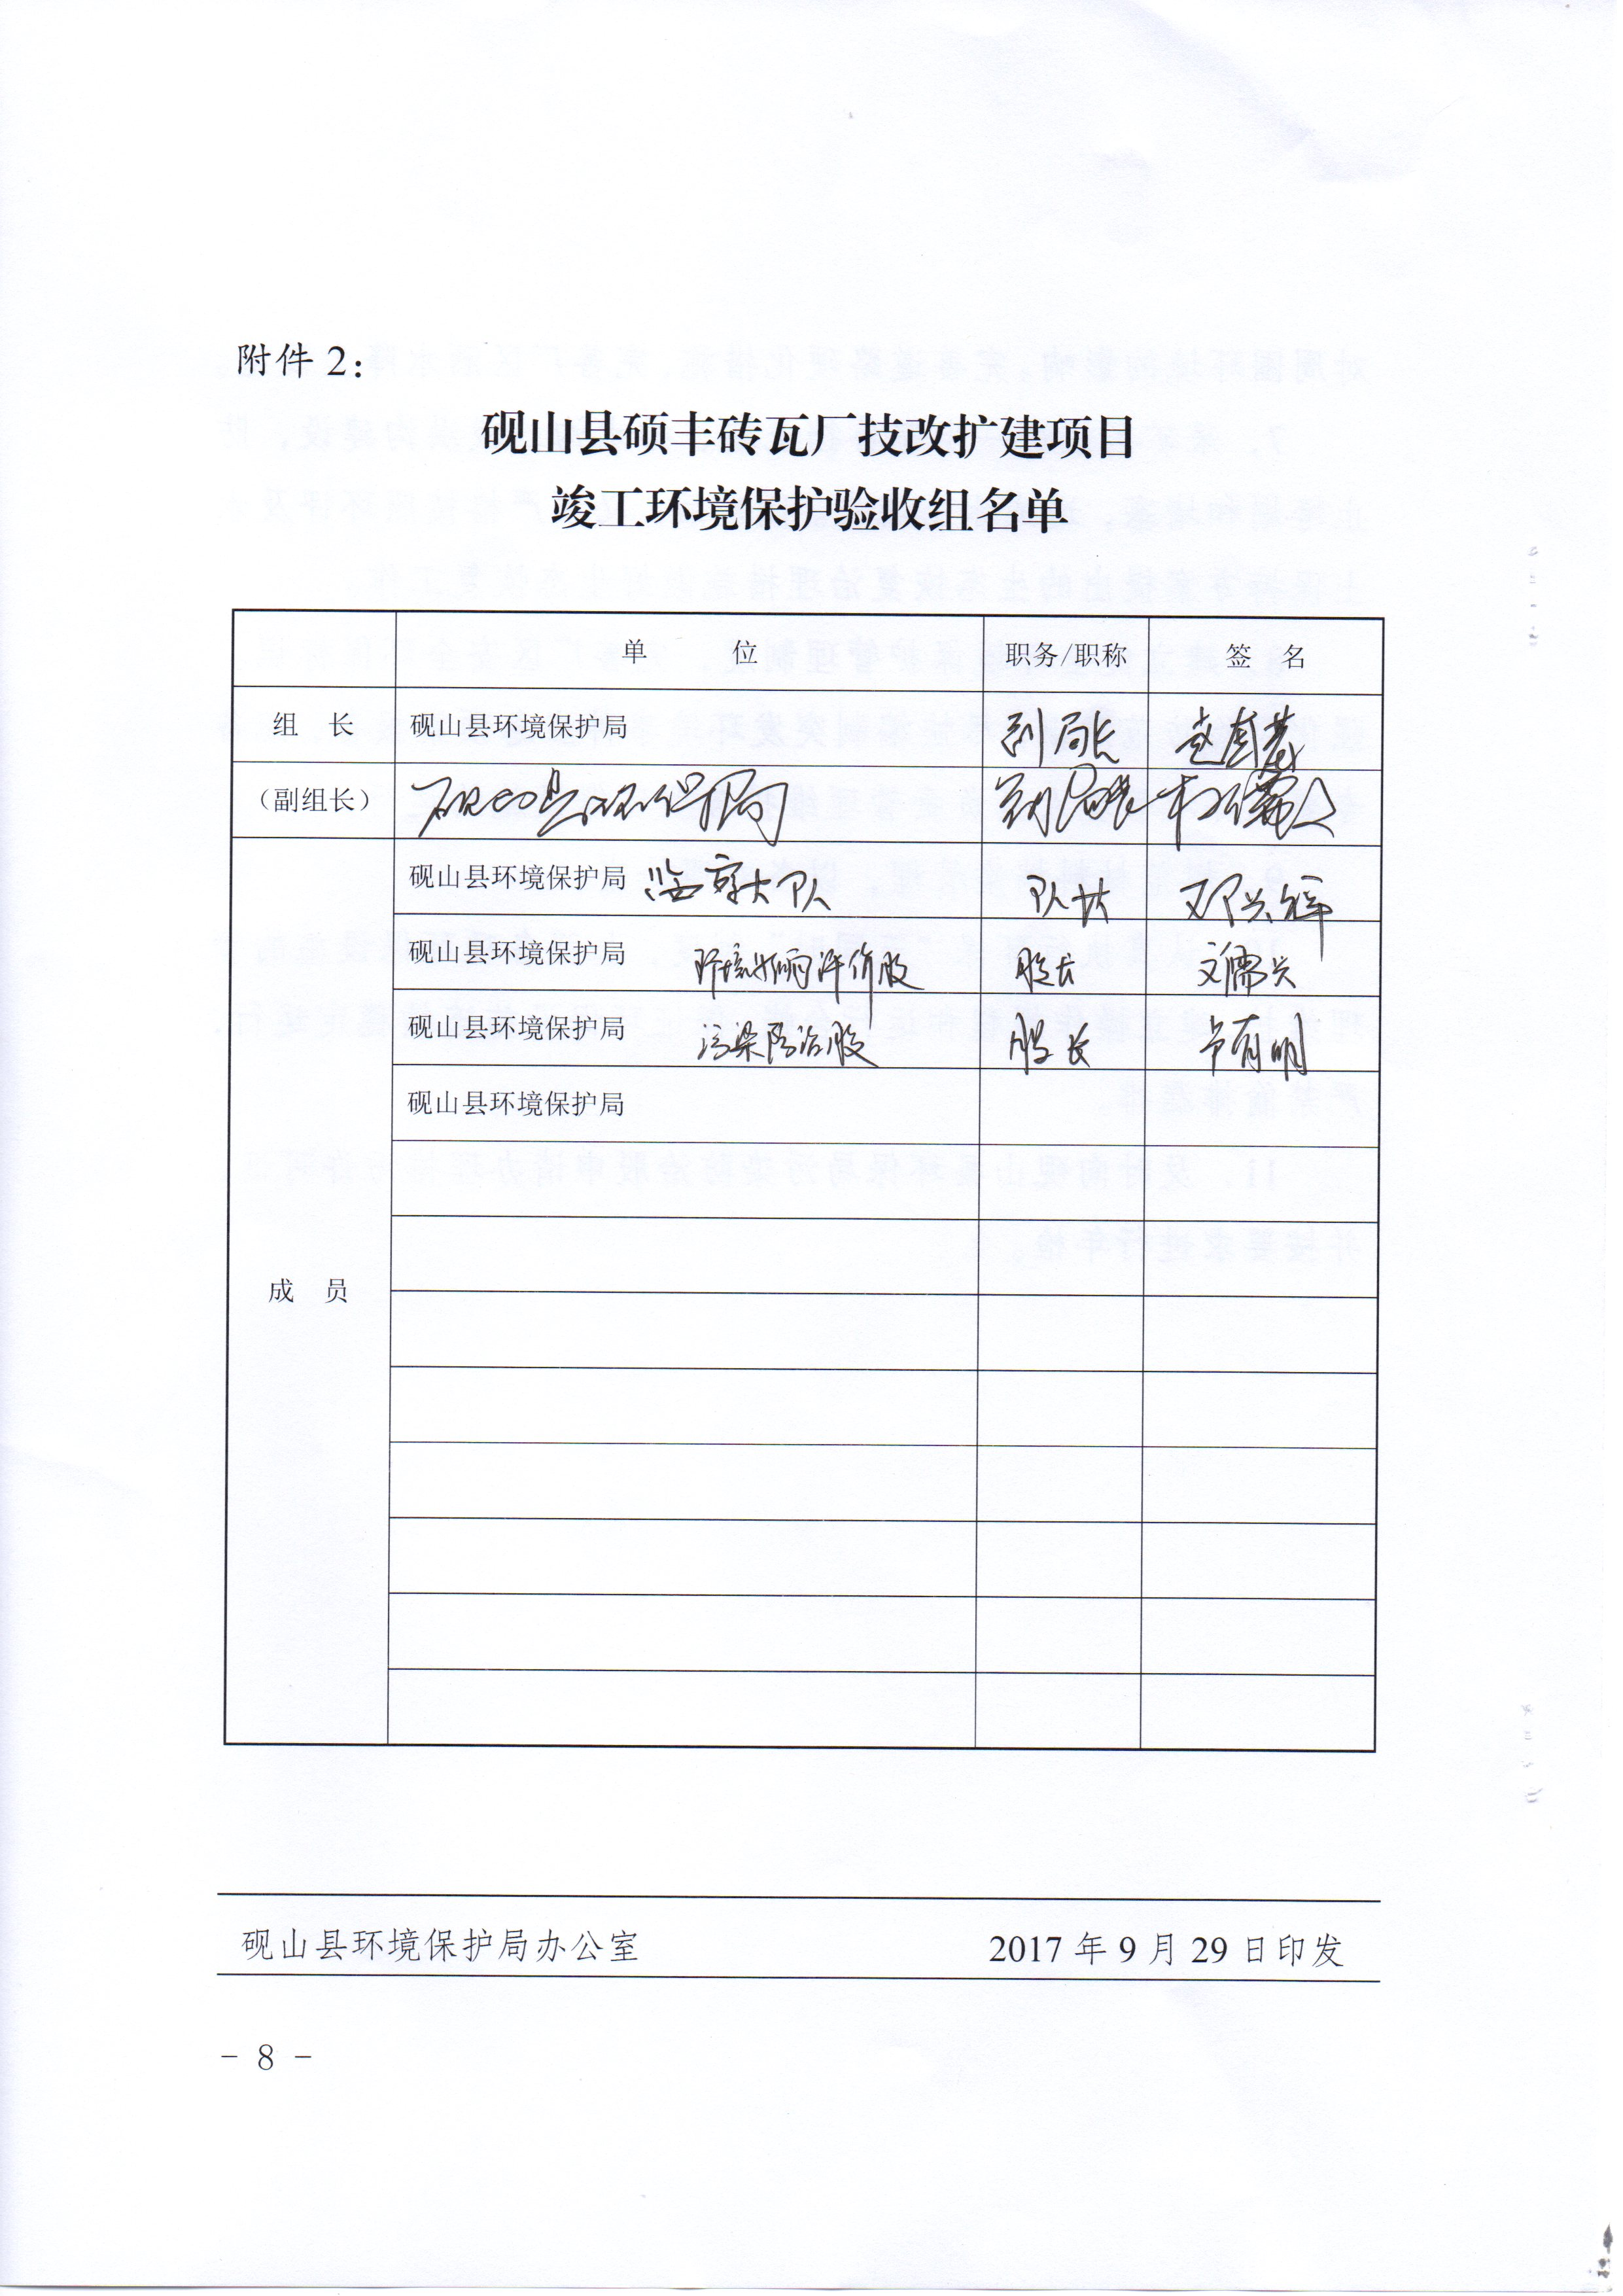 附件 2：
砚山县硕丰砖瓦厂技改扩建项目
竣工环境保护验收组名单
单 位 职务/职称 签 名
组 长 砚山县环境保护局 副局长
（副组长） 砚山县环保局 副局长
砚山县环境保护局 监察大队 队长 邓兴辉
砚山县环境保护局 环境影响评价股 股长 文儒兴
砚山县环境保护局 污染防治股 股长 卢有明
砚山县环境保护局
成 员
砚山县环境保护局办公室 2017 年 9 月 29 日印发
- 8 -